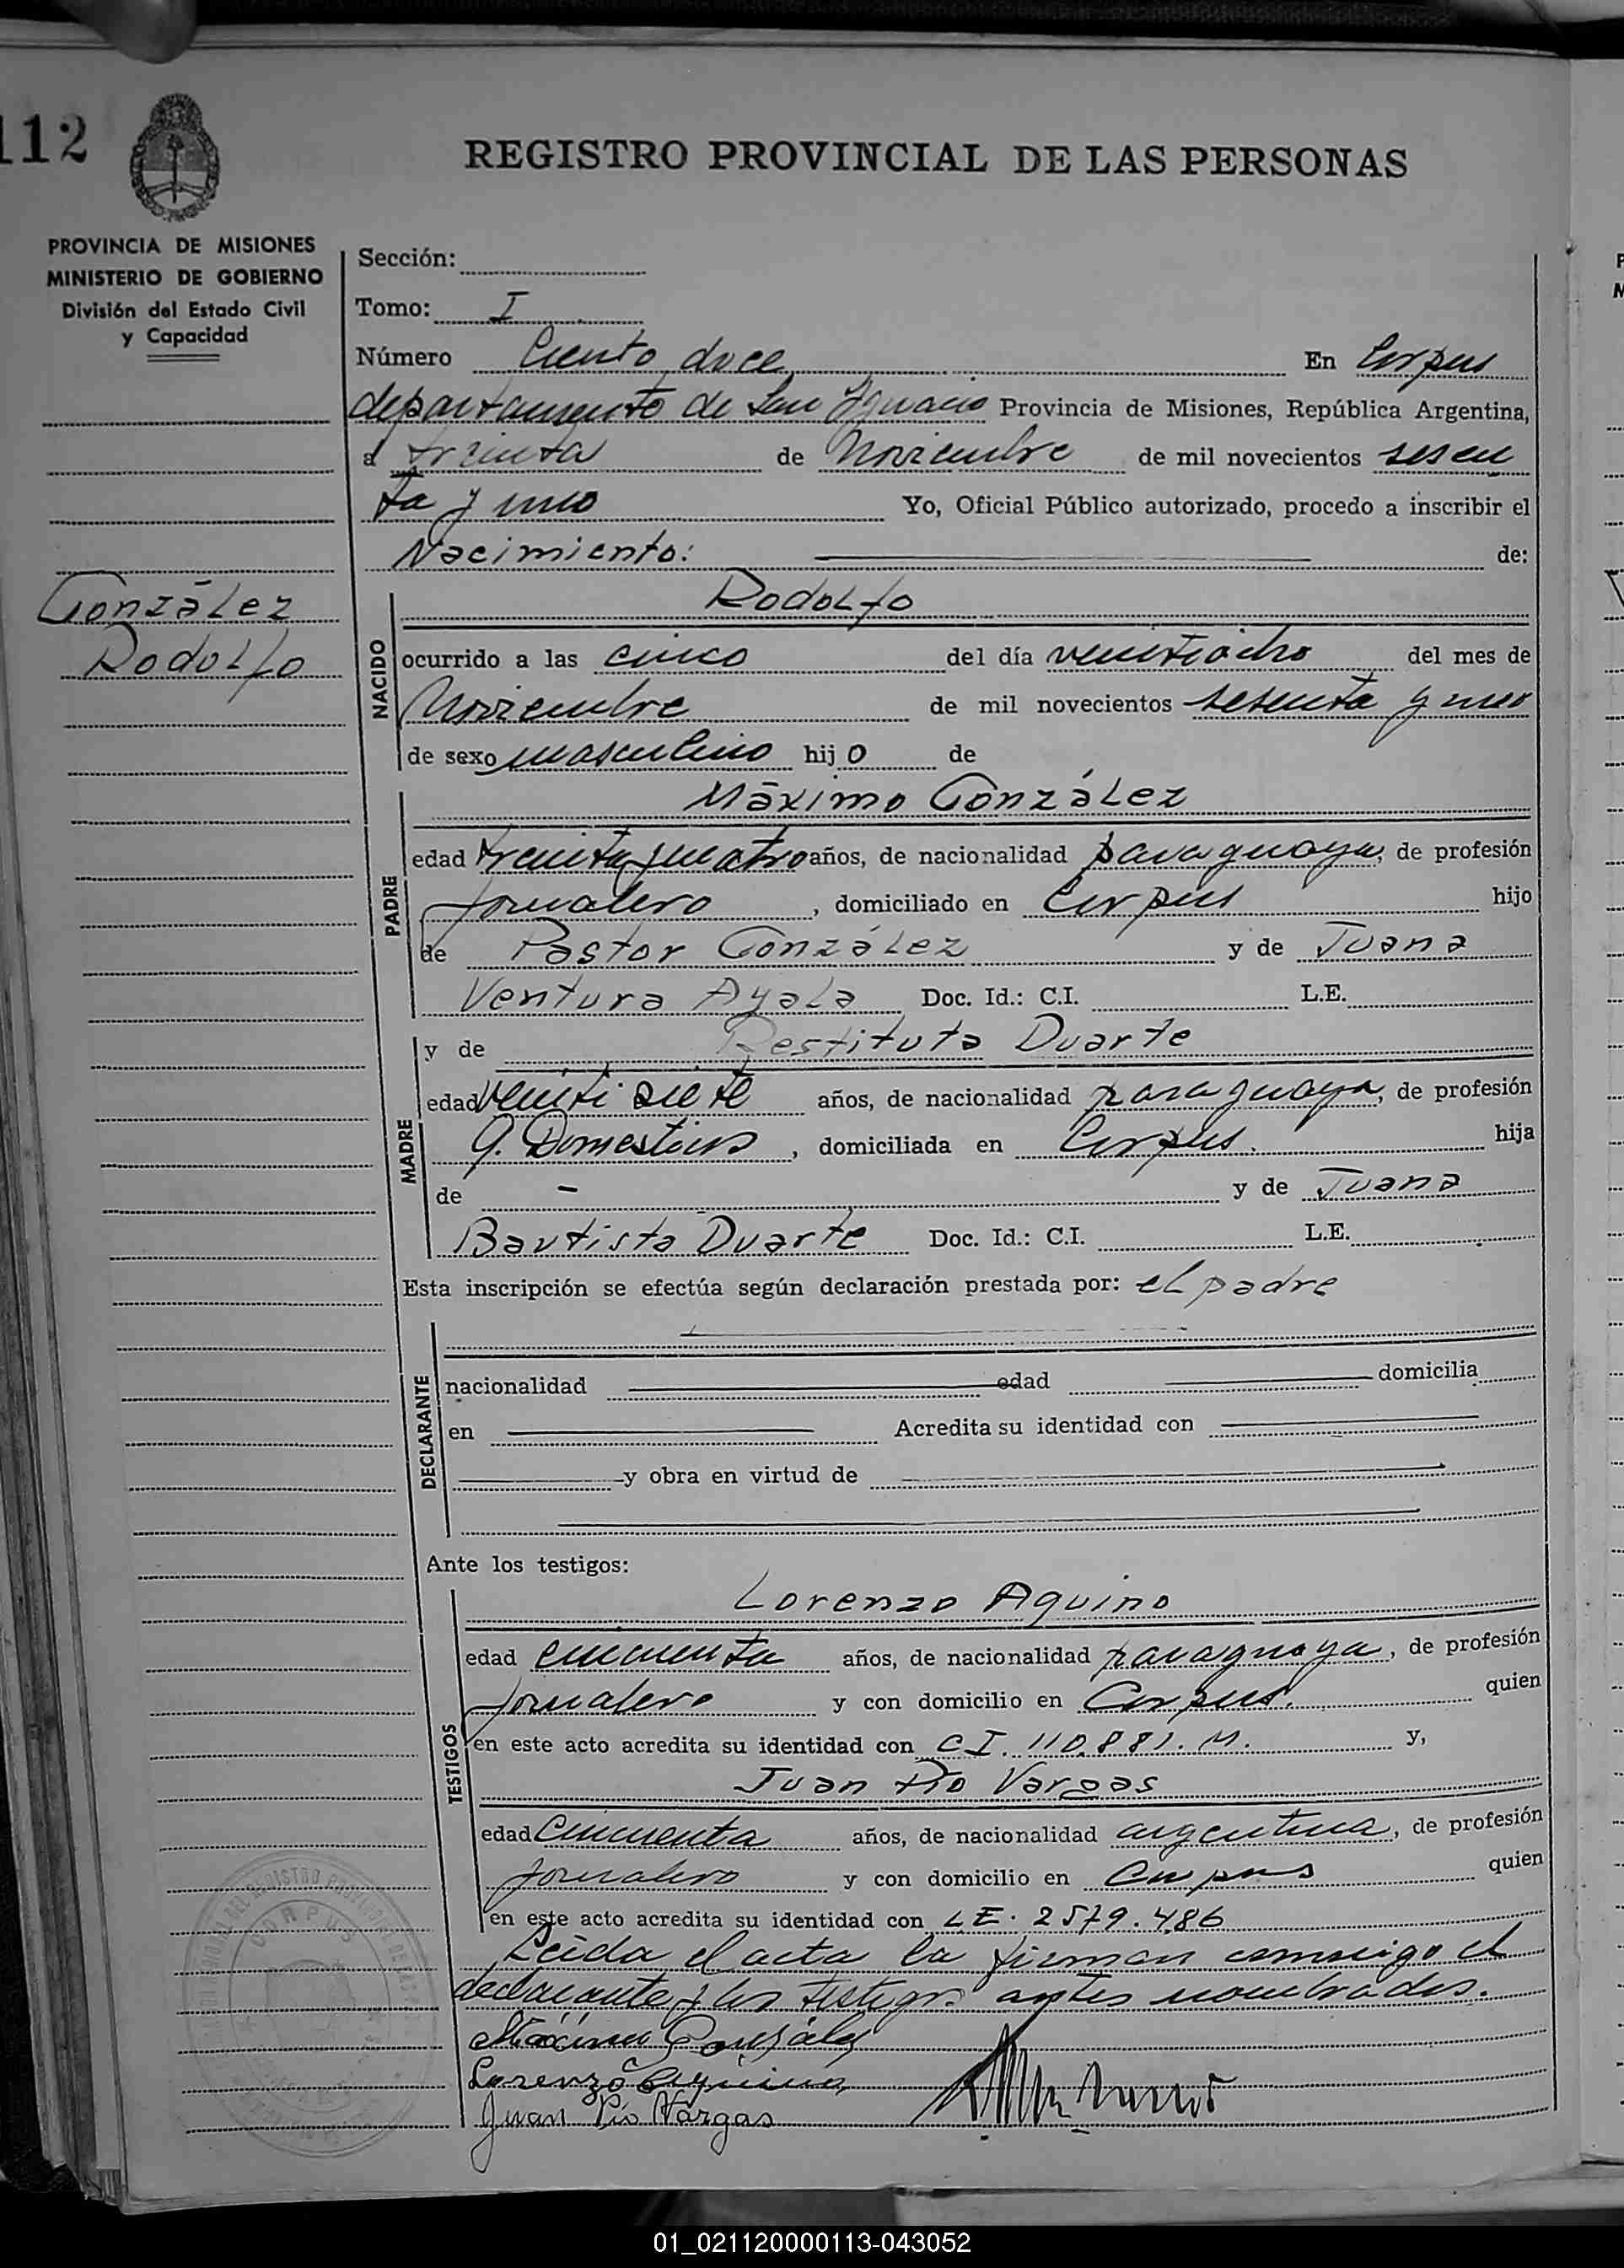 112
REGISTRO PROVINCIAL DE LAS PERSONAS
PROVINCIA DE MISIONES
MINISTERIO DE GOBIERNO
División del Estado Civil
y Capacidad
González
Rodolfo
Sección:
Tomo: I
Número Ciento doce En Corpus
departamento de San Ignacio Provincia de Misiones, República Argentina,
a treinta de Noviembre de mil novecientos sesen
ta y uno Yo, Oficial Público autorizado, procedo a inscribir el
Nacimiento: de:
NACIDO
Rodolfo
ocurrido a las cinco del día veintiocho del mes de
Noviembre de mil novecientos sesenta y uno
de sexo masculino hijo de
PADRE
Máximo González
edad treinta y cuatro años, de nacionalidad paraguaya, de profesión
Jornalero, domiciliado en Corpus hijo
de Pastor González y de Juana
Ventura Ayala Doc. Id.: C.I. L.E.
MADRE
y de Restituta Duarte
edad veinti siete años, de nacionalidad paraguaya, de profesión
Q. Domesticos, domiciliada en Corpus. hija
de - y de Juana
Bautista Duarte Doc. Id.: C.I. L.E.
Esta inscripción se efectúa según declaración prestada por: el padre
DECLARANTE
nacionalidad edad domicilia
en Acredita su identidad con
y obra en virtud de
Ante los testigos:
TESTIGOS
Lorenzo Aquino
edad cincuenta años, de nacionalidad paraguaya, de profesión
Jornalero y con domicilio en Corpus. quien
en este acto acredita su identidad con C I. 110.881. M. y,
Juan Pío Vargas
edad Cincuenta años, de nacionalidad argentina, de profesión
Jornalero y con domicilio en Corpus quien
en este acto acredita su identidad con L E. 2579.486
Leida el acta la firman conmigo el
declarante y los testigos antes nombrados.
Máximo González
Lorenzo Aquino
Juan Pío Vargas
CORPUS
01_021120000113-043052